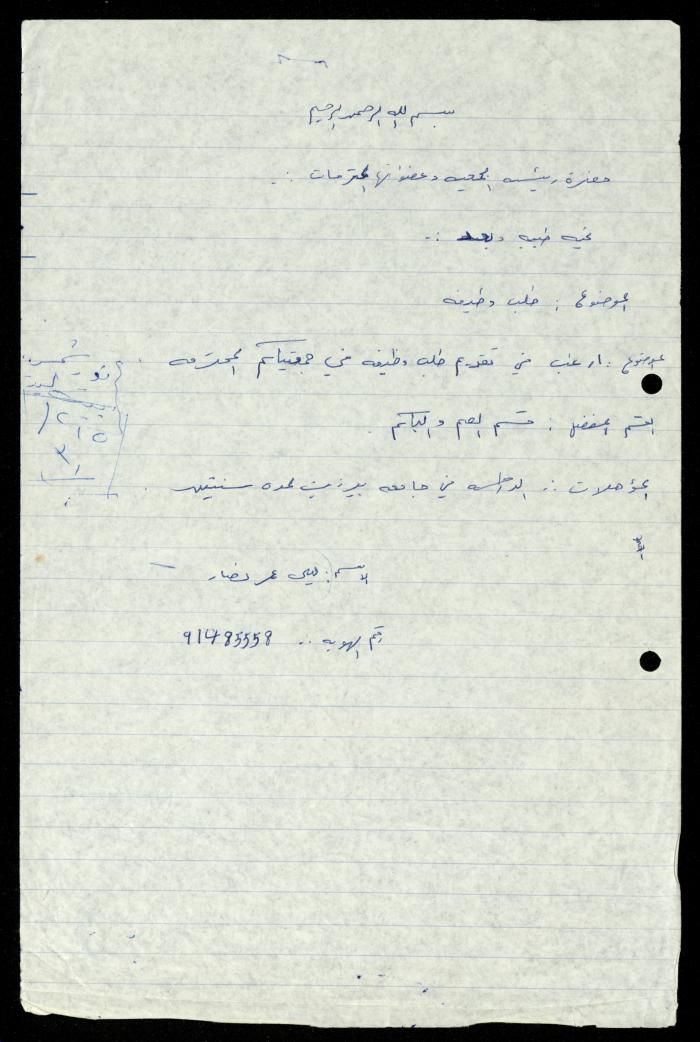 بسم الله الرحمن الرحيم
حضرة رئيسه الجمعيه وعضواتها المحترمات :.
تحيه طيبه وبعد :.
الموضوع : طلب وظيفه
الموضوع : ارغب في تقديم طلب وظيفه في جمعيتكم المحترمه .
القسم المفضل : قسم الصم والبكم .
المؤهلات :. الدراسه في جامعه بيرزيت لمده سنتين .
الاسم : ليلى عمر نصار
رقم الهويه :. 91485558